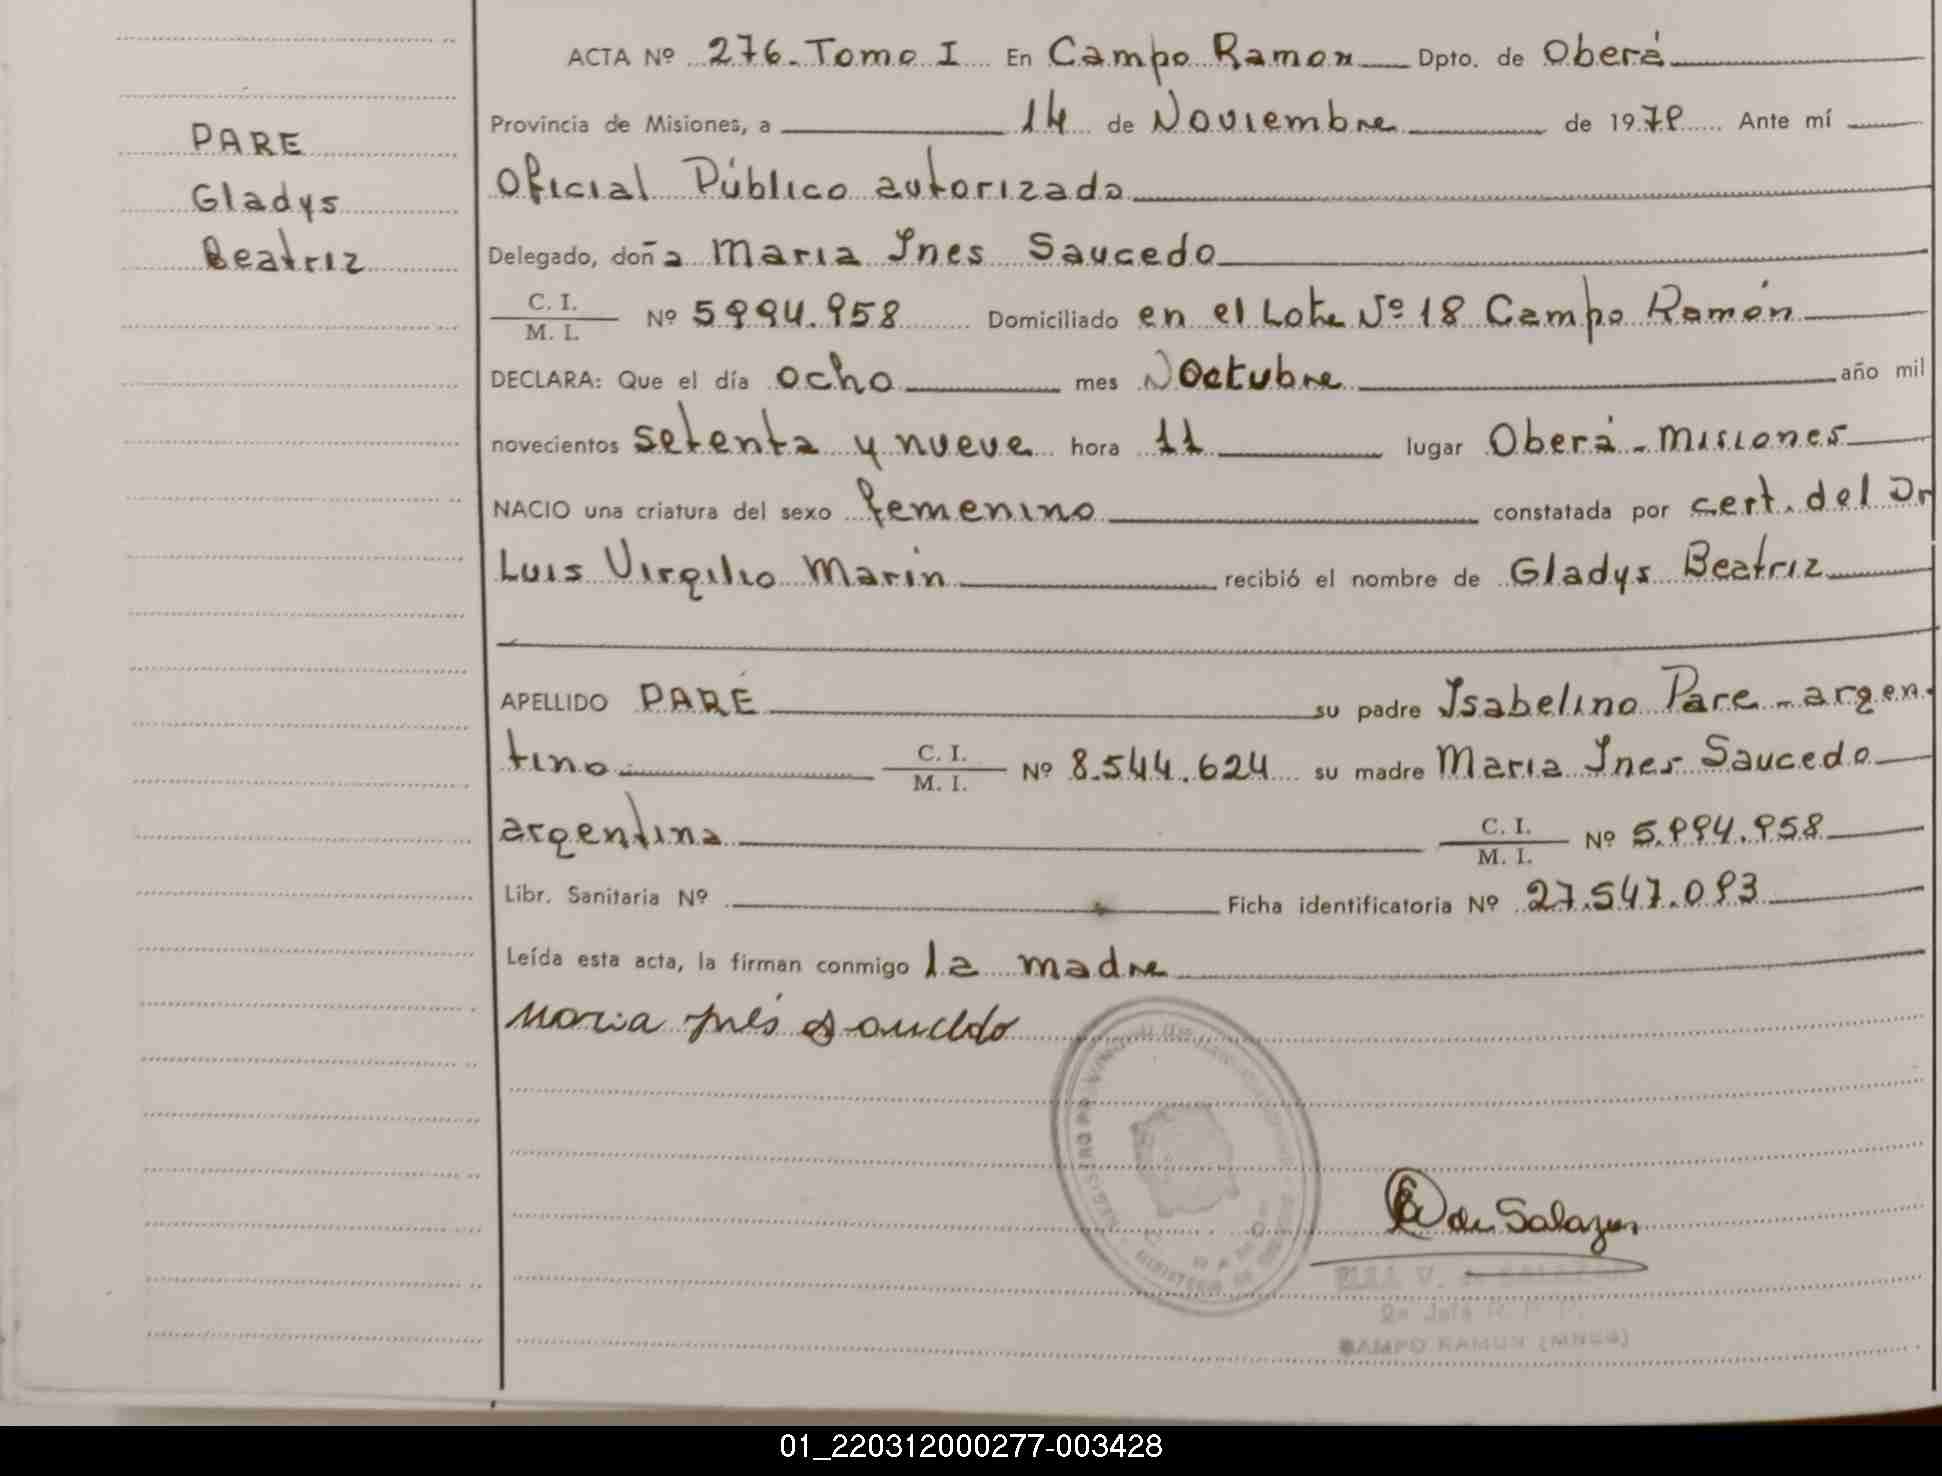 ACTA Nº 276. Tomo I En Campo Ramon Dpto. de Oberá
Provincia de Misiones, a 14 de Noviembre de 1979 Ante mí
Oficial Público autorizado
Delegado, doña Maria Ines Saucedo
C. I.
M. I.
Nº 5994.958 Domiciliado en el Lote Nº 18 Campo Ramón
DECLARA: Que el día ocho mes Octubre año mil
novecientos setenta y nueve hora 11 lugar Oberá - Misiones
NACIO una criatura del sexo femenino constatada por cert. del Dr
Luis Virgilio Marin recibió el nombre de Gladys Beatriz
APELLIDO PARÉ su padre Isabelino Pare - argen-
tino C. I. M. I. Nº 8.544.624 su madre Maria Ines Saucedo
argentina C. I. M. I. Nº 5.994.958
Libr. Sanitaria Nº Ficha identificatoria Nº 27.547.093
Leída esta acta, la firman conmigo la madre
Maria Inés Saucedo
PARE
Gladys
Beatriz
REGISTRO PROVINCIAL
MINISTERIO DE
de Salazar
CAMPO RAMON (MNES)
01_220312000277-003428